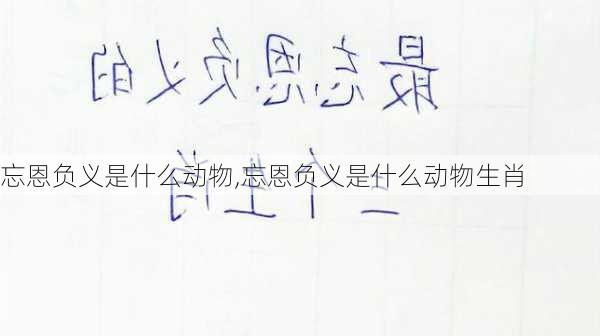 最忘恩负义的
忘恩负义是什么动物,忘恩负义是什么动物生肖
三个生肖